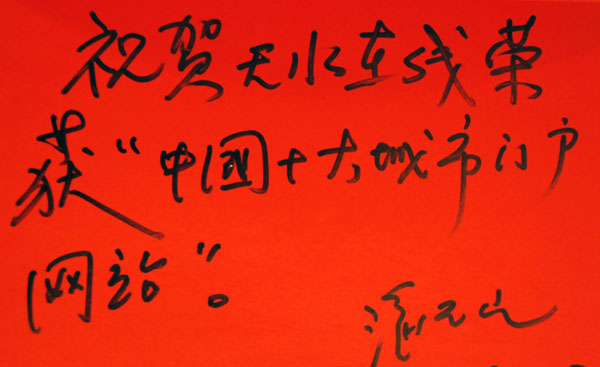 祝贺天水在线荣
获“中國十大城市门户
网站”。